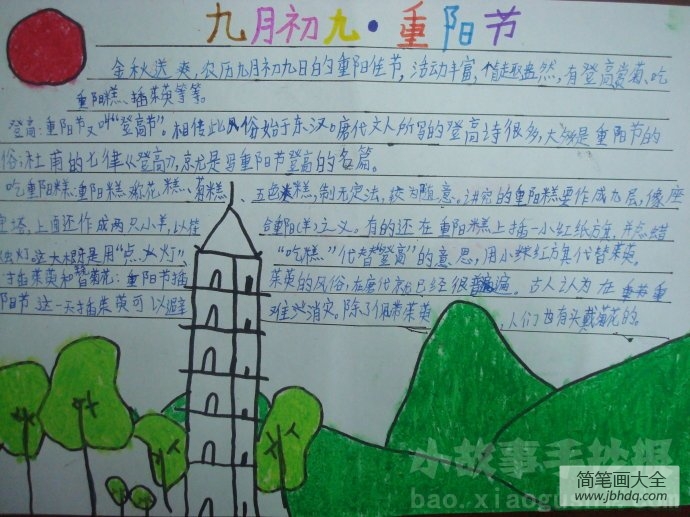 九月初九·重阳节
金秋送爽,农历九月初九日的重阳佳节,活动丰富,情趣盎然,有登高赏菊、吃
重阳糕、插茱萸等等。
登高:重阳节又叫“登高节”。相传此风俗始于东汉。唐代文人所写的登高诗很多,大多是重阳节的
俗;杜甫的七律《登高》,就是写重阳节登高的名篇。
吃重阳糕:重阳糕称花糕、菊糕、五色糕,制无定法,较为随意。讲究的重阳糕要作成九层,像座
宝塔,上面还作成两只小羊,以符合重阳(羊)之义。有的还在重阳糕上插一小红纸方旗,并点蜡
烛灯。这大概是用“点灯”、“吃糕”代替“登高”的意思,用小红方旗代替茱萸。
插茱萸和簪菊花:重阳节插茱萸的风俗,在唐代就已经很普遍。古人认为在重
阳节这一天插茱萸可以避难消灾。除了佩带茱萸,人们也有头戴菊花的。
小故事手抄报
bao.xiaogushi.com
简笔画大全
www.jbhdq.com